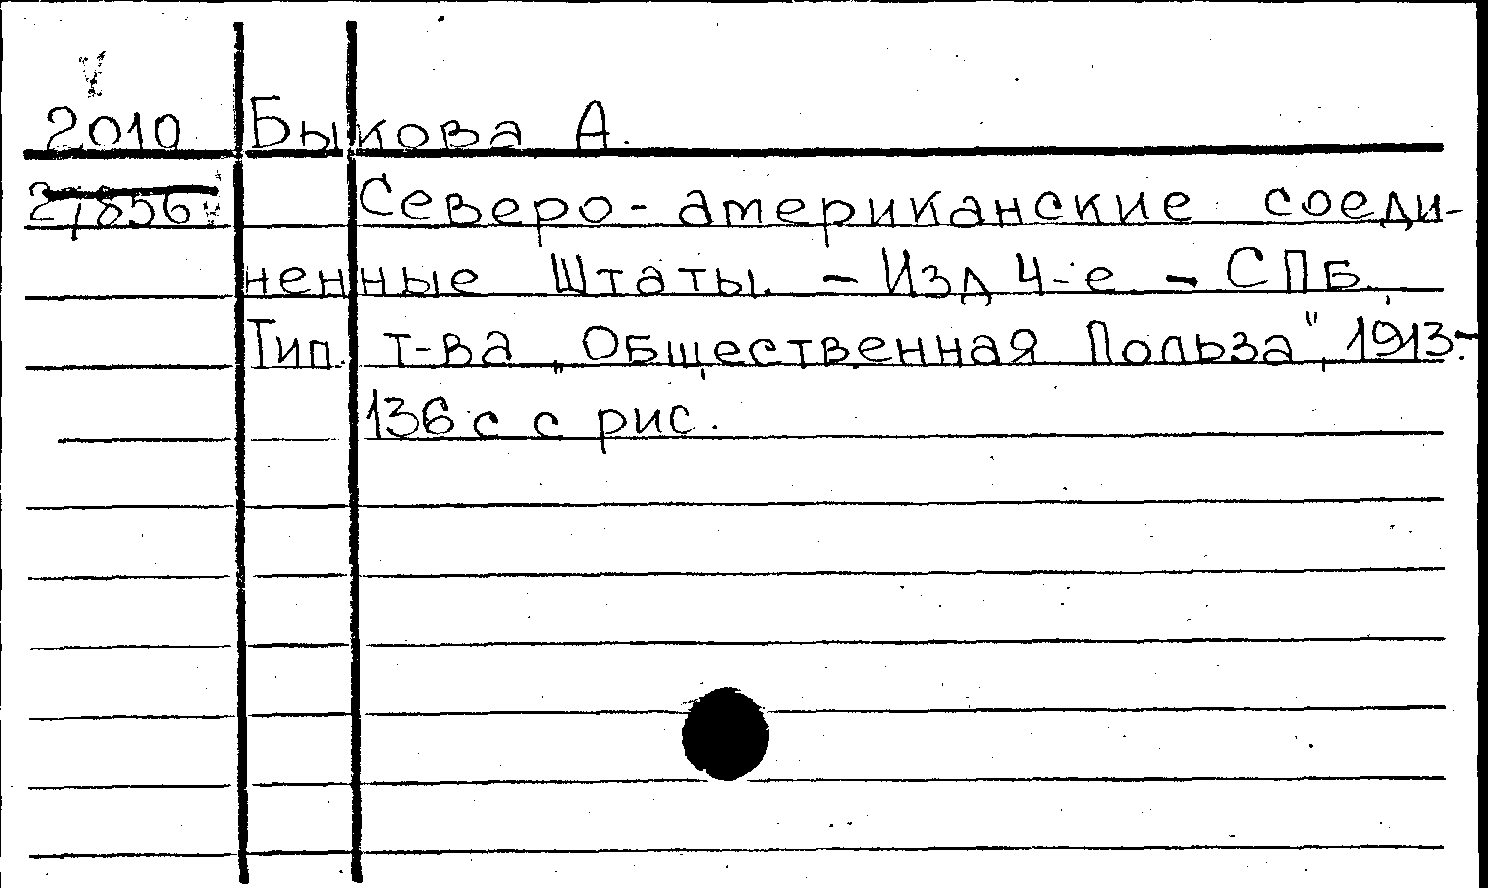 2010 Быкова А.
21856 Северо-американские соеди-
ненные Штаты. - Изд 4-е - СПБ.,
Тип. т-ва „Общественная Польза", 1913.-
136 с с рис.